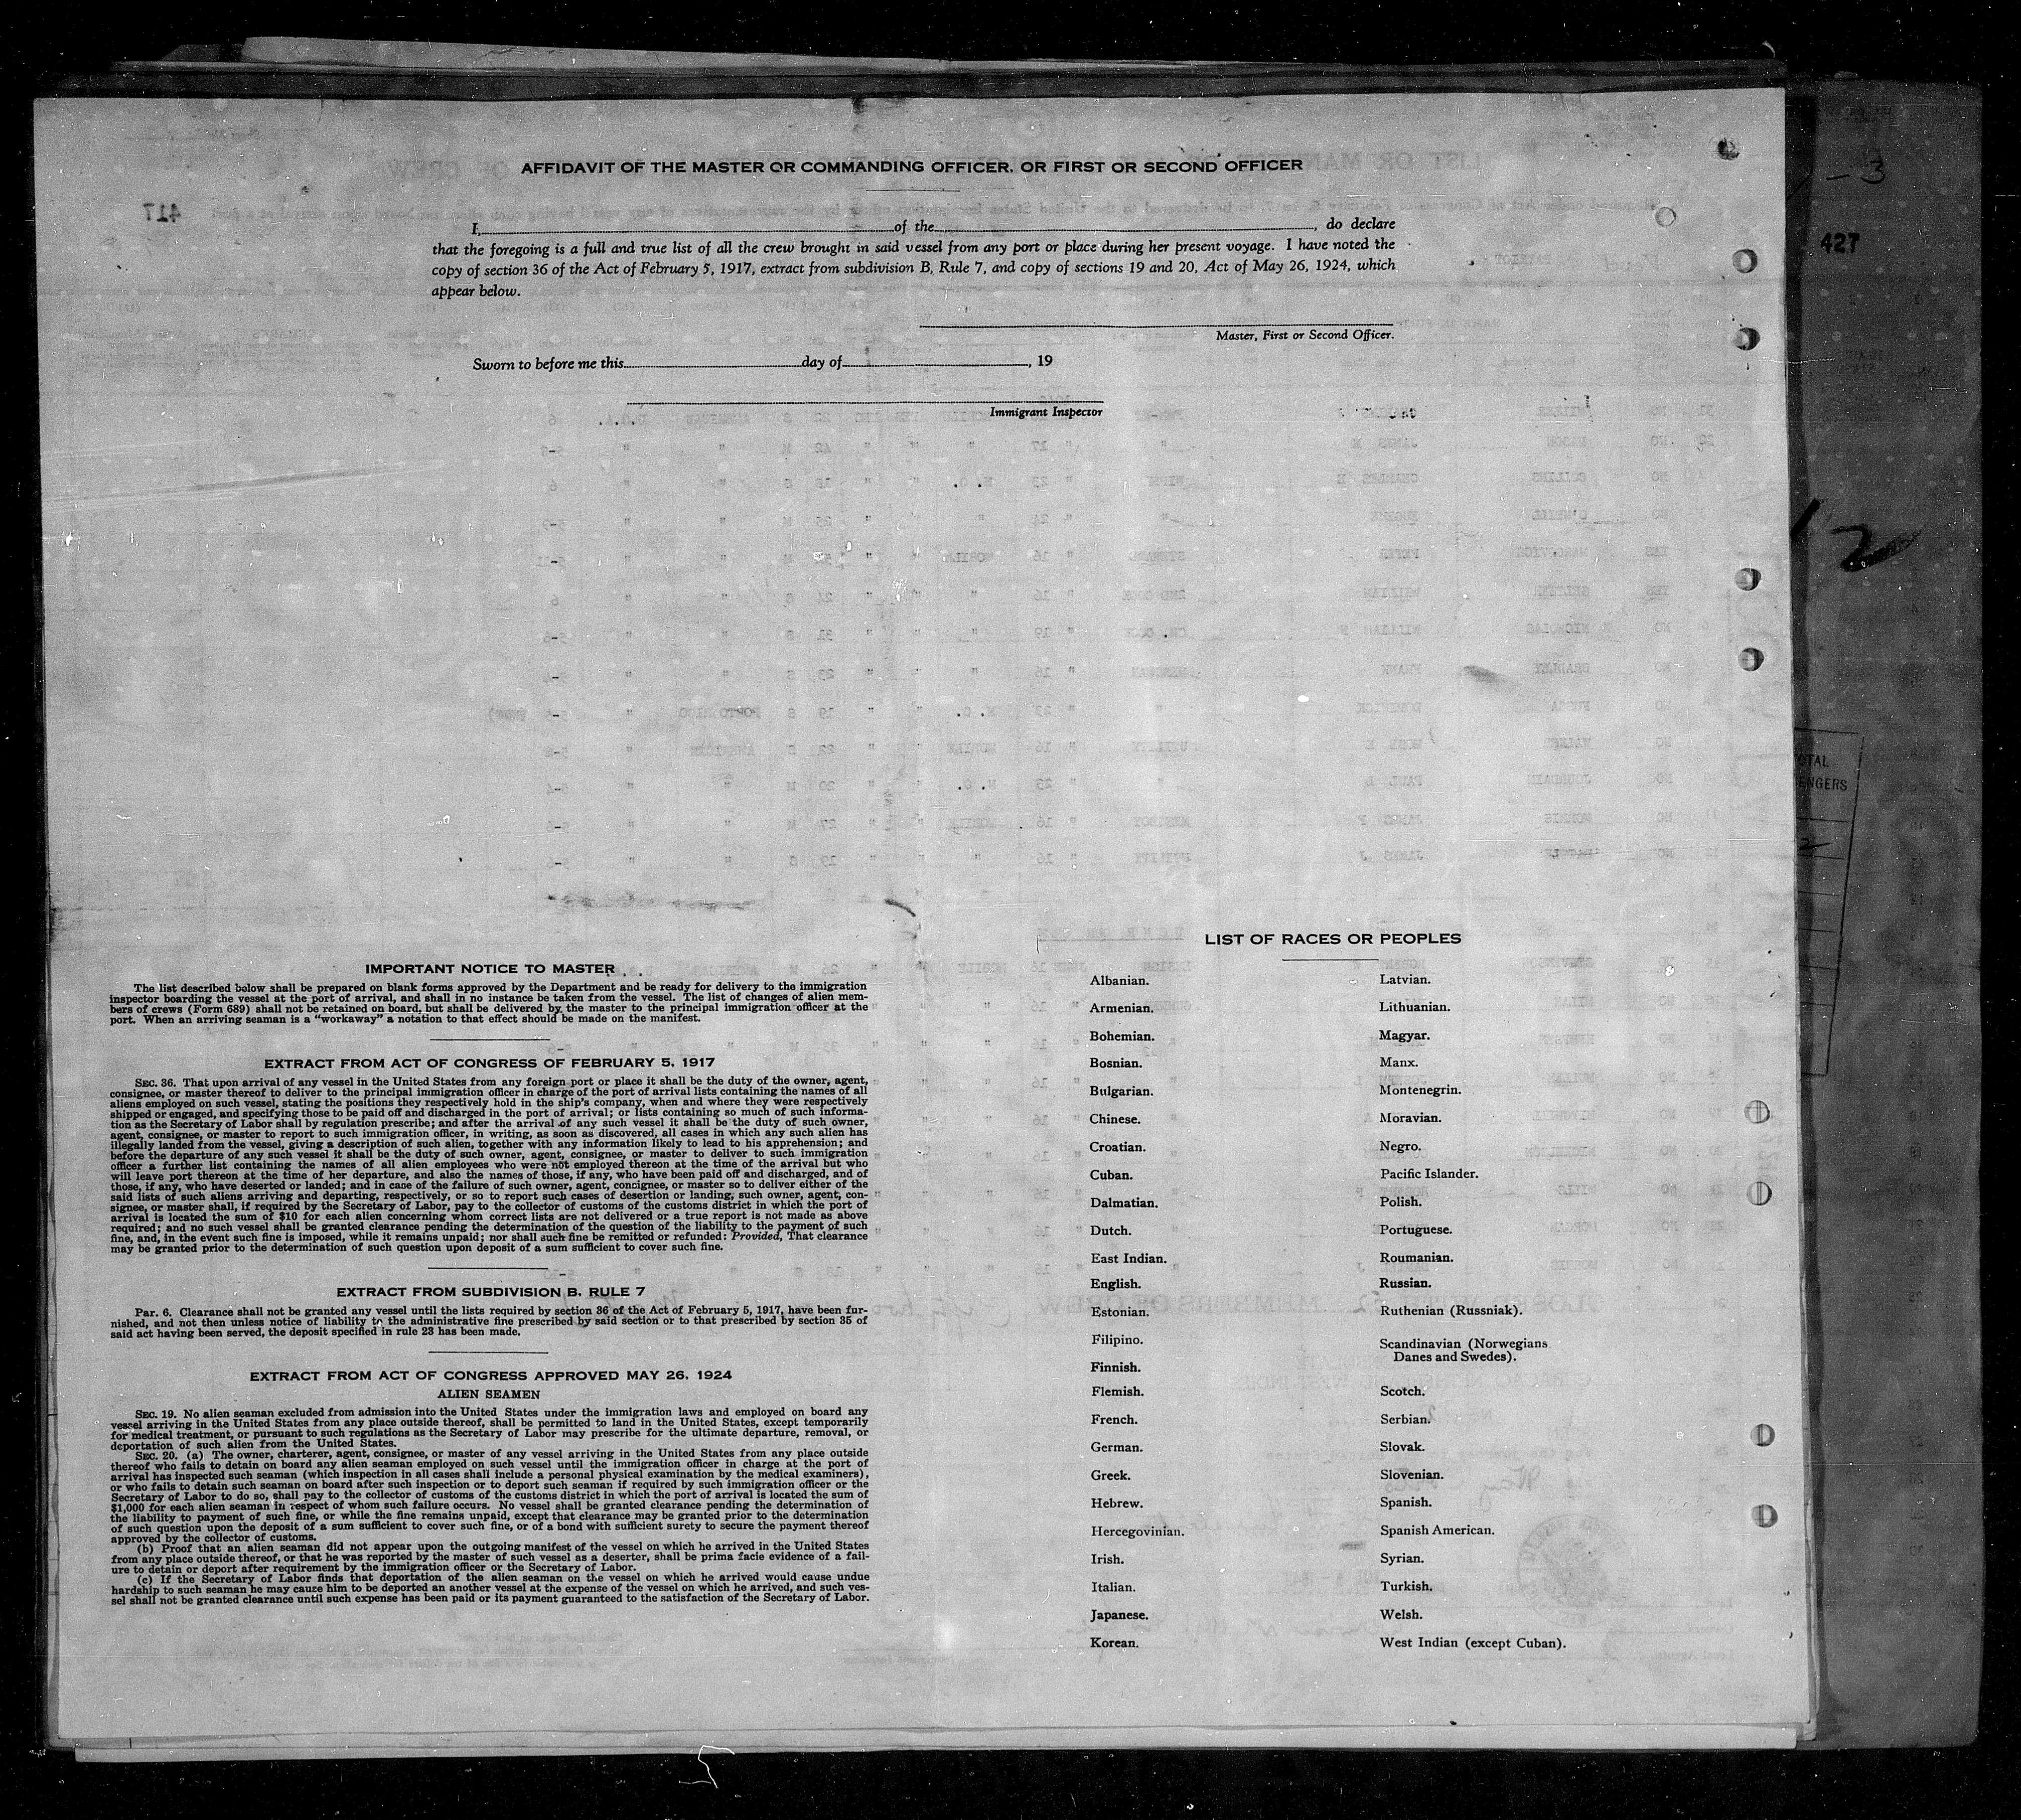 AFFIDAVIT OF THE MASTER OR COMMANDING OFFICER, OR FIRST OR SECOND OFFICER
I, of the , do declare
that the foregoing is a full and true list of all the crew brought in said vessel from any port or place during her present voyage. I have noted the
copy of section 36 of the Act of February 5, 1917, extract from subdivision B, Rule 7, and copy of sections 19 and 20, Act of May 26, 1924, which
appear below.
Master, First or Second Officer.
Sworn to before me this day of , 19
Immigrant Inspector
427
IMPORTANT NOTICE TO MASTER
The list described below shall be prepared on blank forms approved by the Department and be ready for delivery to the immigration
inspector boarding the vessel at the port of arrival, and shall in no instance be taken from the vessel. The list of changes of alien mem-
bers of crews (Form 689) shall not be retained on board, but shall be delivered by the master to the principal immigration officer at the
port. When an arriving seaman is a "workaway" a notation to that effect should be made on the manifest.
EXTRACT FROM ACT OF CONGRESS OF FEBRUARY 5, 1917
SEC. 36. That upon arrival of any vessel in the United States from any foreign port or place it shall be the duty of the owner, agent,
consignee, or master thereof to deliver to the principal immigration officer in charge of the port of arrival lists containing the names of all
aliens employed on such vessel, stating the positions they respectively hold in the ship's company, when and where they were respectively
shipped or engaged, and specifying those to be paid off and discharged in the port of arrival; or lists containing so much of such informa-
tion as the Secretary of Labor shall by regulation prescribe; and after the arrival of any such vessel it shall be the duty of such owner,
agent, consignee, or master to report to such immigration officer, in writing, as soon as discovered, all cases in which any such alien has
illegally landed from the vessel, giving a description of such alien, together with any information likely to lead to his apprehension; and
before the departure of any such vessel it shall be the duty of such owner, agent, consignee, or master to deliver to such immigration
officer a further list containing the names of all alien employees who were not employed thereon at the time of the arrival but who
will leave port thereon at the time of her departure, and also the names of those, if any, who have been paid off and discharged, and of
those, if any, who have deserted or landed; and in case of the failure of such owner, agent, consignee, or master so to deliver either of the
said lists of such aliens arriving and departing, respectively, or so to report such cases of desertion or landing, such owner, agent, con-
signee, or master shall, if required by the Secretary of Labor, pay to the collector of customs of the customs district in which the port of
arrival is located the sum of $10 for each alien concerning whom correct lists are not delivered or a true report is not made as above
required; and no such vessel shall be granted clearance pending the determination of the question of the liability to the payment of such
fine, and, in the event such fine is imposed, while it remains unpaid; nor shall such fine be remitted or refunded: Provided, That clearance
may be granted prior to the determination of such question upon deposit of a sum sufficient to cover such fine.
EXTRACT FROM SUBDIVISION B, RULE 7
Par. 6. Clearance shall not be granted any vessel until the lists required by section 36 of the Act of February 5, 1917, have been fur-
nished, and not then unless notice of liability to the administrative fine prescribed by said section or to that prescribed by section 35 of
said act having been served, the deposit specified in rule 23 has been made.
EXTRACT FROM ACT OF CONGRESS APPROVED MAY 26, 1924
ALIEN SEAMEN
SEC. 19. No alien seaman excluded from admission into the United States under the immigration laws and employed on board any
vessel arriving in the United States from any place outside thereof, shall be permitted to land in the United States, except temporarily
for medical treatment, or pursuant to such regulations as the Secretary of Labor may prescribe for the ultimate departure, removal, or
deportation of such alien from the United States.
SEC. 20. (a) The owner, charterer, agent, consignee, or master of any vessel arriving in the United States from any place outside
thereof who fails to detain on board any alien seaman employed on such vessel until the immigration officer in charge at the port of
arrival has inspected such seaman (which inspection in all cases shall include a personal physical examination by the medical examiners),
or who fails to detain such seaman on board after such inspection or to deport such seaman if required by such immigration officer or the
Secretary of Labor to do so, shall pay to the collector of customs of the customs district in which the port of arrival is located the sum of
$1,000 for each alien seaman in respect of whom such failure occurs. No vessel shall be granted clearance pending the determination of
the liability to payment of such fine, or while the fine remains unpaid, except that clearance may be granted prior to the determination
of such question upon the deposit of a sum sufficient to cover such fine, or of a bond with sufficient surety to secure the payment thereof
approved by the collector of customs.
(b) Proof that an alien seaman did not appear upon the outgoing manifest of the vessel on which he arrived in the United States
from any place outside thereof, or that he was reported by the master of such vessel as a deserter, shall be prima facie evidence of a fail-
ure to detain or deport after requirement by the immigration officer or the Secretary of Labor.
(c) If the Secretary of Labor finds that deportation of the alien seaman on the vessel on which he arrived would cause undue
hardship to such seaman he may cauze him to be deported an another vessel at the expense of the vessel on which he arrived, and such ves-
sel shall not be granted clearance until such expense has been paid or its payment guaranteed to the satisfaction of the Secretary of Labor.
LIST OF RACES OR PEOPLES
Albanian.
Armenian.
Bohemian.
Bosnian.
Bulgarian.
Chinese.
Croatian.
Cuban.
Dalmatian.
Dutch.
East Indian.
English.
Estonian.
Filipino.
Finnish.
Flemish.
French.
German.
Greek.
Hebrew.
Hercegovinian.
Irish.
Italian.
Japanese.
Korean.
Latvian.
Lithuanian.
Magyar.
Manx.
Montenegrin.
Moravian.
Negro.
Pacific Islander.
Polish.
Portuguese.
Roumanian.
Russian.
Ruthenian (Russniak).
Scandinavian (Norwegians
Danes and Swedes).
Scotch.
Serbian.
Slovak.
Slovenian.
Spanish.
Spanish American.
Syrian.
Turkish.
Welsh.
West Indian (except Cuban).